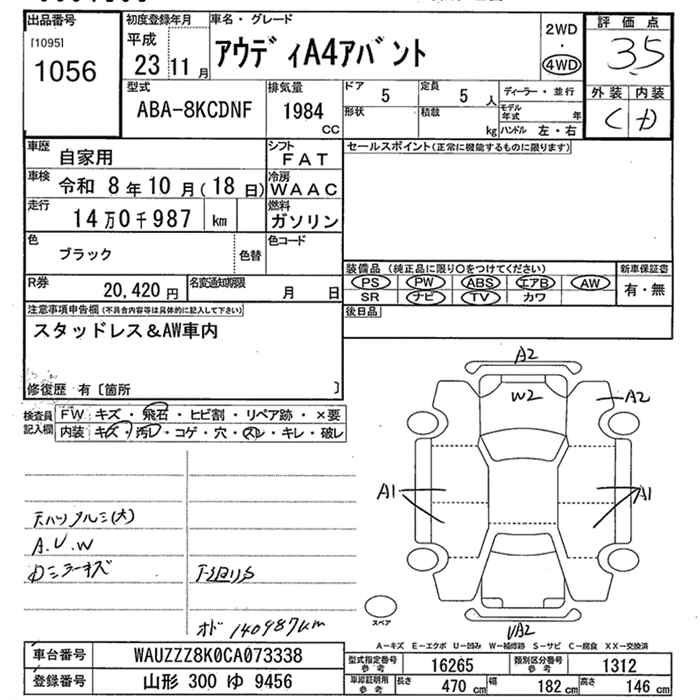 出品番号 初度登録年月 車名・グレード 2WD 評価点
[1095] 平成 アウディA4アバント ・ 3.5
1056 23 11月 4WD
型式 排気量 ドア 定員 ディーラー・並行 外装 内装
ABA-8KCDNF 1984 cc 5 5人 モデル年式 年 C D
形状 積載 kg ハンドル 左・右
車歴 自家用 シフト FAT セールスポイント(正常に機能するものに限ります)
車検 令和 8年10月(18日) 冷房 WAAC
走行 14万0千987 km 燃料 ガソリン
色 ブラック 色替 色コード
装備品 (純正品に限り〇をつけてください) 新車保証書
R券 20,420円 名変通知期限 月 日 PS PW ABS エアB AW 有・無
SR ナビ TV カワ
注意事項申告欄(不具合内容等は具体的に記入して下さい) 後日品
スタッドレス&AW車内
修復歴 有〔箇所 〕
検査員記入欄 FW キズ・飛石・ヒビ割・リペア跡・×要
内装 キズ・汚レ・コゲ・穴・スレ・キレ・破レ
A2
W2 A2
A1 A1
天ハリタルミ(大)
A.U.W
オド 140987km
スペア
A2
A-キズ E-エクボ U-凹み W-補修跡 S-サビ C-腐食 XX-交換済
車台番号 WAUZZZ8K0CA073338 型式指定番号参考 16265 類別区分番号参考 1312
登録番号 山形 300 ゆ 9456 車庫証明用参考 長さ 470cm 幅 182cm 高さ 146cm